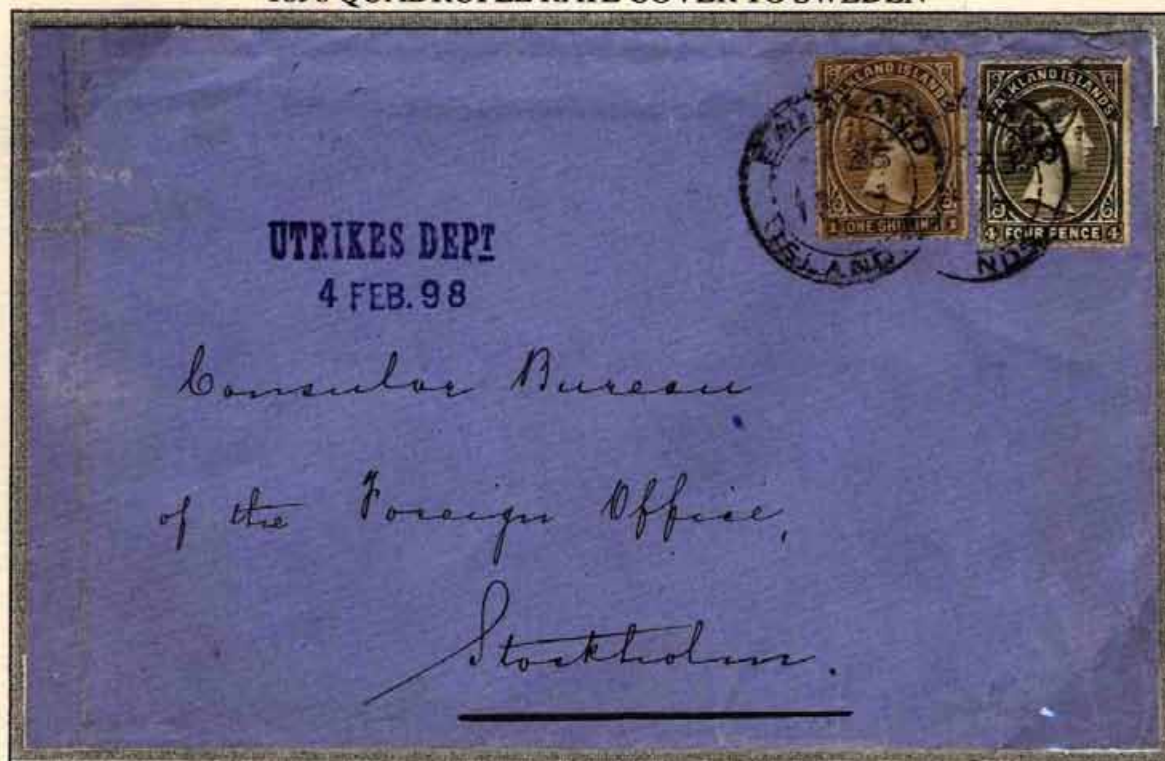 QUADRUPLE RATE COVER TO SWEDEN
FALKLAND ISLANDS
1 ONE SHILLING 1
FALKLAND ISLANDS
4 FOUR PENCE 4
UTRIKES DEPT
4 FEB. 98
Consular Bureau
of the Foreign Office,
Stockholm.